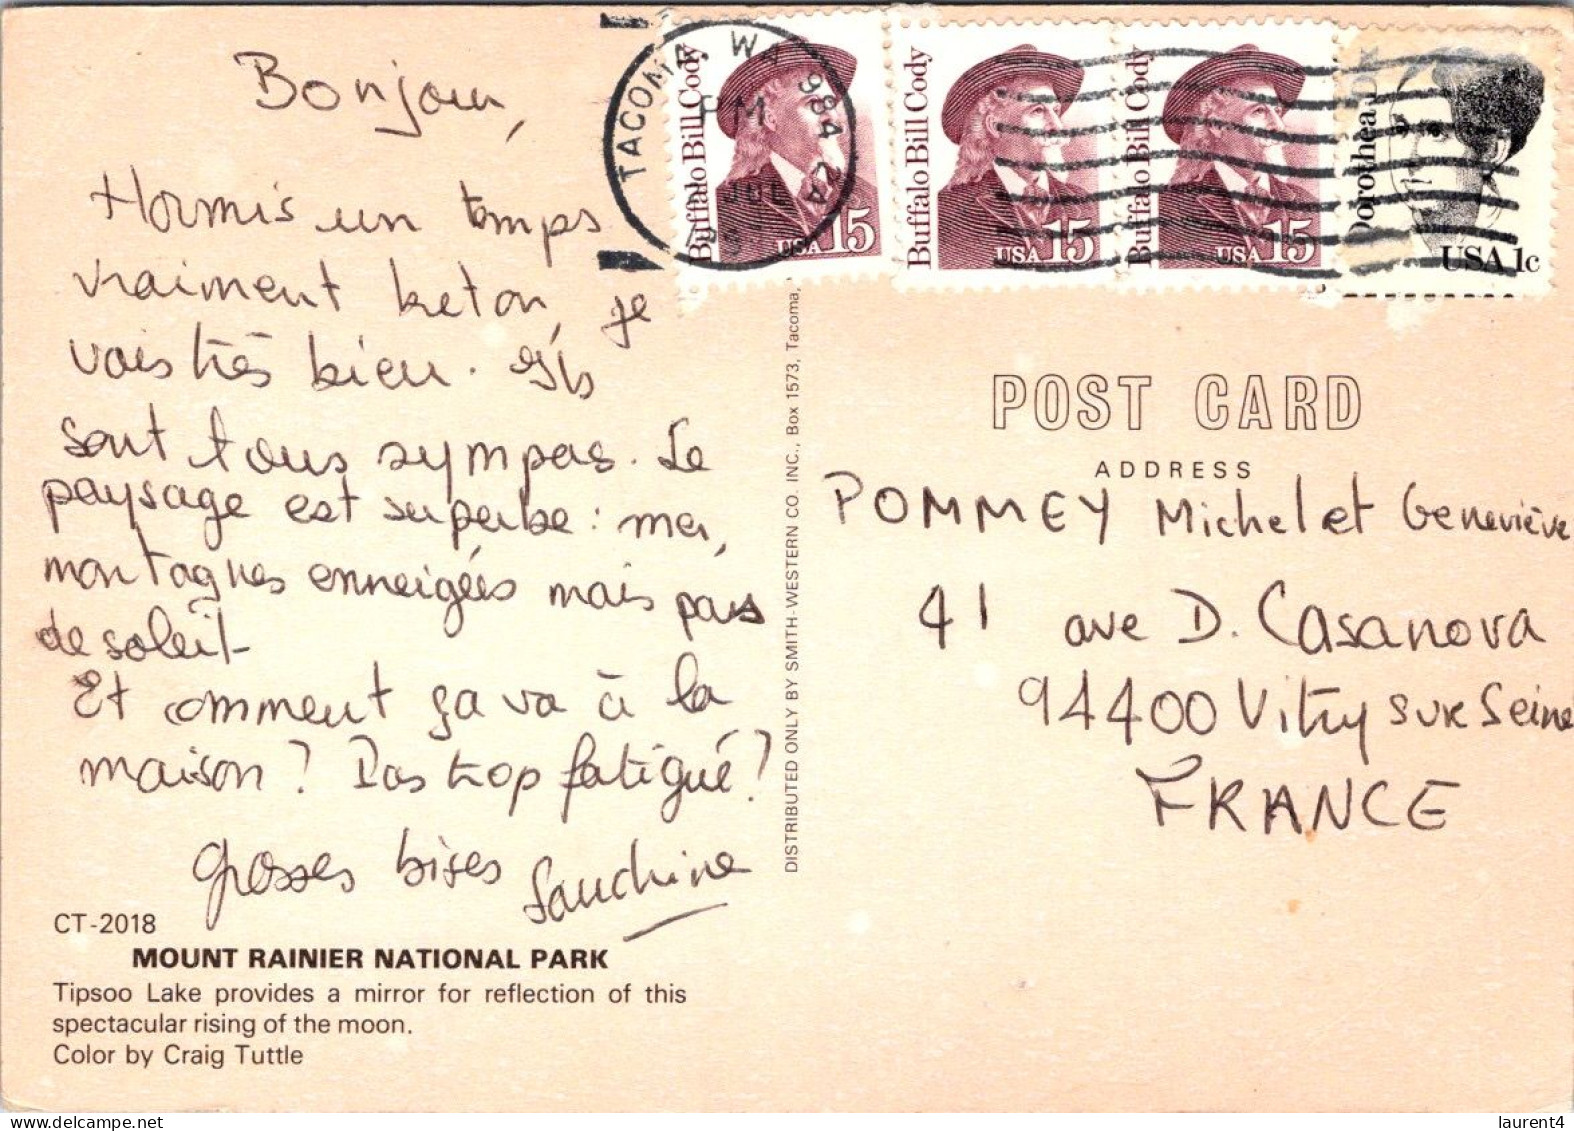 Bonjour,
Hormis un temps
vraiment breton, je
vais très bien. Ils
sont tous sympas. Le
paysage est superbe : mer,
montagnes enneigées mais pas
de soleil.
Et comment ça va à la
maison ? Pas trop fatigué ?
Grosses bises Sandrine
CT-2018
MOUNT RAINIER NATIONAL PARK
Tipsoo Lake provides a mirror for reflection of this
spectacular rising of the moon.
Color by Craig Tuttle
DISTRIBUTED ONLY BY SMITH-WESTERN CO. INC., Box 1573, Tacoma,
TACOMA, WA 984
PM
JUL
Buffalo Bill Cody
USA 15
Buffalo Bill Cody
USA 15
Buffalo Bill Cody
USA 15
Dorothea Dix
USA 1c
POST CARD
ADDRESS
POMMEY Michel et Geneviève
41 ave D. Casanova
94400 Vitry sur Seine
FRANCE
laurent4